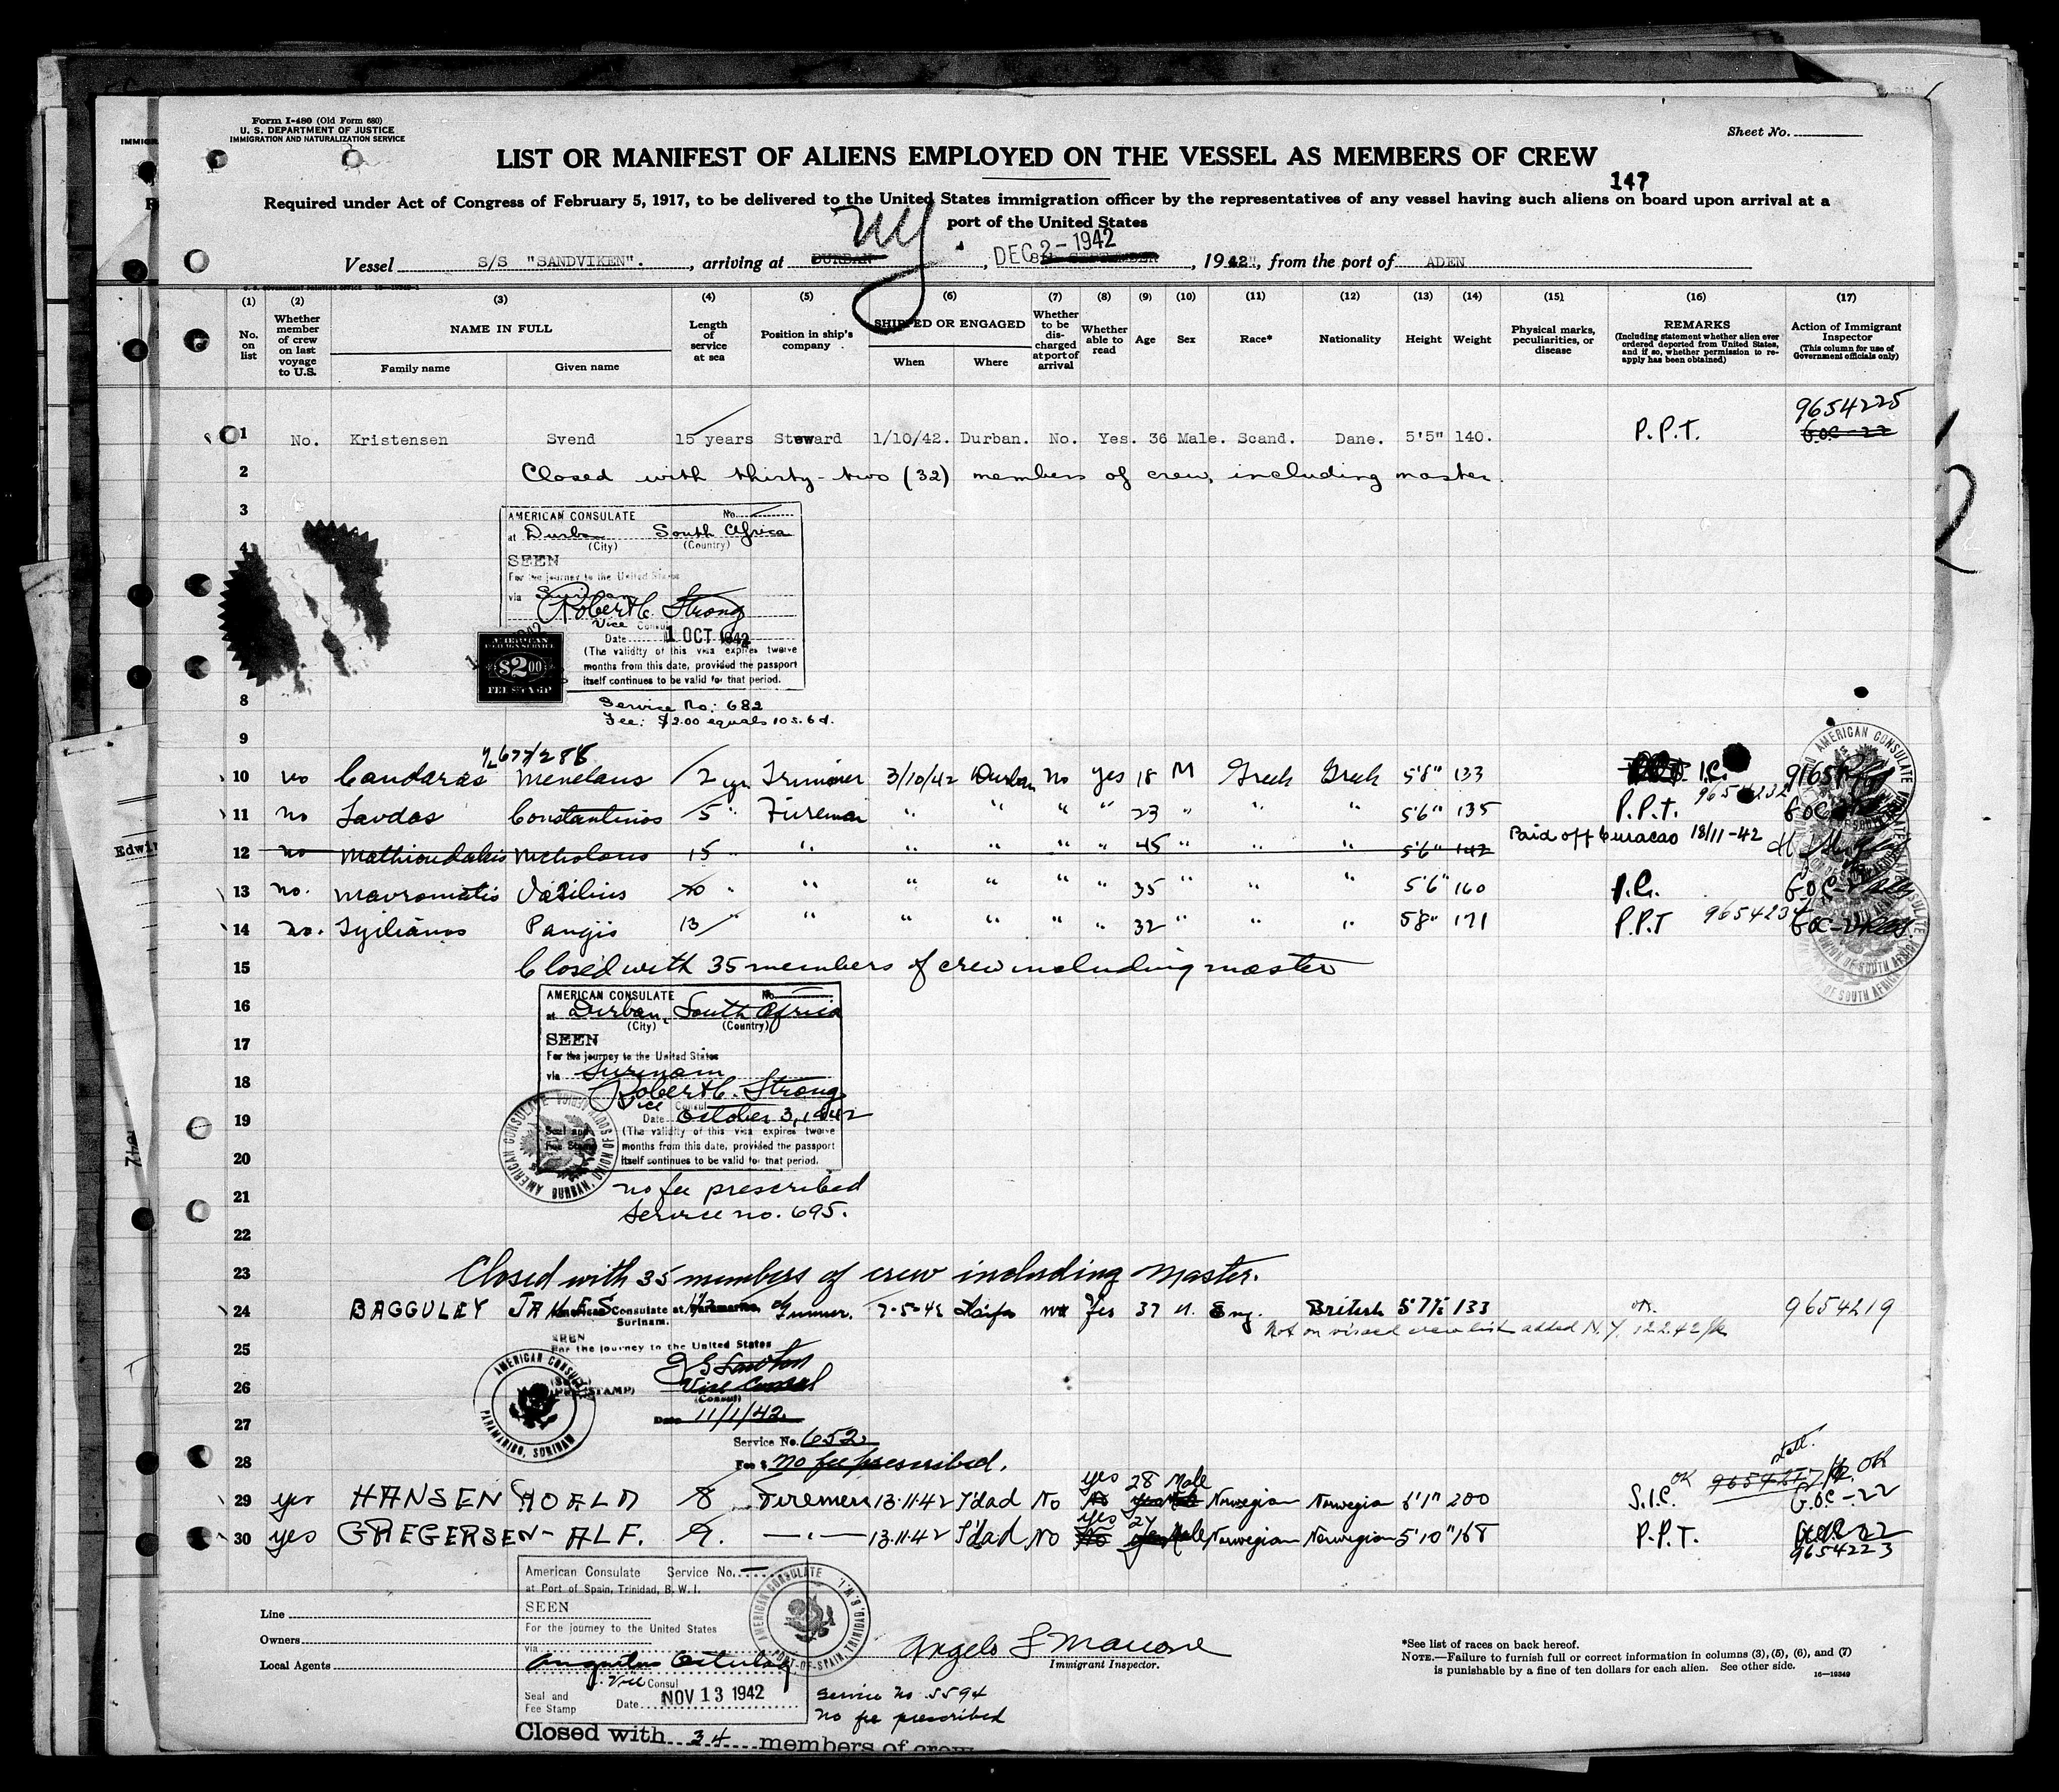 Form I-480 (Old Form 680)
U. S. DEPARTMENT OF JUSTICE
IMMIGRATION AND NATURALIZATION SERVICE
Sheet No.
LIST OR MANIFEST OF ALIENS EMPLOYED ON THE VESSEL AS MEMBERS OF CREW
147
Required under Act of Congress of February 5, 1917, to be delivered to the United States immigration officer by the representatives of any vessel having such aliens on board upon arrival at a
port of the United States
NY
DEC 2 - 1942
Vessel S/S "SANDVIKEN". , arriving at DURBAN , SEPTEMBER , 1942 , from the port of ADEN
(1) (2) (3) (4) (5) (6) (7) (8) (9) (10) (11) (12) (13) (14) (15) (16) (17)
No. on list
Whether member of crew on last voyage to U.S.
NAME IN FULL
Family name Given name
Length of service at sea
Position in ship's company
SHIPPED OR ENGAGED
When Where
Whether to be discharged at port of arrival
Whether able to read
Age
Sex
Race*
Nationality
Height
Weight
Physical marks, peculiarities, or disease
REMARKS
(Including statement whether alien ever ordered deported from United States, and if so, whether permission to re-apply has been obtained)
Action of Immigrant Inspector
(This column for use of Government officials only)
9654225
1 No. Kristensen Svend 15 years Steward 1/10/42. Durban. No. Yes. 36 Male. Scand. Dane. 5'5" 140. P.P.T. GOC-22
2 Closed with thirty-two (32) members of crew, including master.
3
AMERICAN CONSULATE No.
at Durban South Africa
(City) (Country)
4
SEEN
For the journey to the United States
via Surinam
Robert C. Strong
Vice Consul
Date 1 OCT 1942
(The validity of this visa expires twelve
months from this date, provided the passport
itself continues to be valid for that period.
AMERICAN
$2.00
FEE STAMP
8
Service No: 682
Fee: $2.00 equals 10s. 6d.
9
10 no Candaras Menelaus 2 yr Trimmer 3/10/42 Durban no yes 18 M Greek Greek 5'8" 133 I.C.
11 no Savdas Constantinos 5 " Fireman " " " " 23 " " " 5'6" 135 P.P.T. 9654232
12 no Mathioudakis Nicholaus 15 " " " " " " 45 " " " 5'6" 142 Paid off Curacao 18/11-42
13 no. Mavromatis Vasilius " " " " " " 35 " " " 5'6" 160 I.C.
14 no. Pangis 13 " " " " " " 32 " " " 5'8" 171 P.P.T 9654234
AMERICAN CONSULATE
UNION OF SOUTH AFRICA
15 Closed with 35 members of crew including master
16
AMERICAN CONSULATE No.
at Durban, South Africa
(City) (Country)
17
SEEN
For the journey to the United States
via Surinam
18
Robert C. Strong
Vice Consul
19
Date October 3, 1942
Seal and Fee Stamp
(The validity of this visa expires twelve
months from this date, provided the passport
itself continues to be valid for that period.
AMERICAN CONSULATE DURBAN, UNION OF SOUTH AFRICA
20
21 no fee prescribed
Service no. 695.
22
23 Closed with 35 members of crew including Master.
24 BAGGULEY JAMES Gunner. 7-5-42 Haifa no Yes 37 M. Eng. British 5'7½ 133 9654219
American Consulate at Paramaribo,
Surinam.
Not on visaed crew list added N.Y. 12.2.42
25
SEEN
For the journey to the United States
26
Vice Consul
(Consul)
AMERICAN CONSULATE
PARAMARIBO, SURINAM
27
Date 11/1/42
Service No. 652
28
Fee $ No fee prescribed.
29 yes HANSEN 8 Firemen 13.11.42 T'dad No yes 28 Male Norwegian Norwegian 6'1" 200 S.I.C. OK GOC-22
30 yes GREGERSEN- ALF. 9. —"— 13.11.42 T'dad No yes 27 Male Norwegian Norwegian 5'10" 168 P.P.T.
9654223
American Consulate Service No.
at Port of Spain, Trinidad, B.W.I.
SEEN
For the journey to the United States
via
Vice Consul
Seal and
Fee Stamp Date NOV 13 1942
AMERICAN CONSULATE PORT-OF-SPAIN, TRINIDAD, B.W.I.
Line
Owners
Local Agents
Immigrant Inspector.
Service No 5594
No fee prescribed
*See list of races on back hereof.
NOTE.—Failure to furnish full or correct information in columns (3), (5), (6), and (7)
is punishable by a fine of ten dollars for each alien. See other side. 16—19349
Closed with 34 members of crew